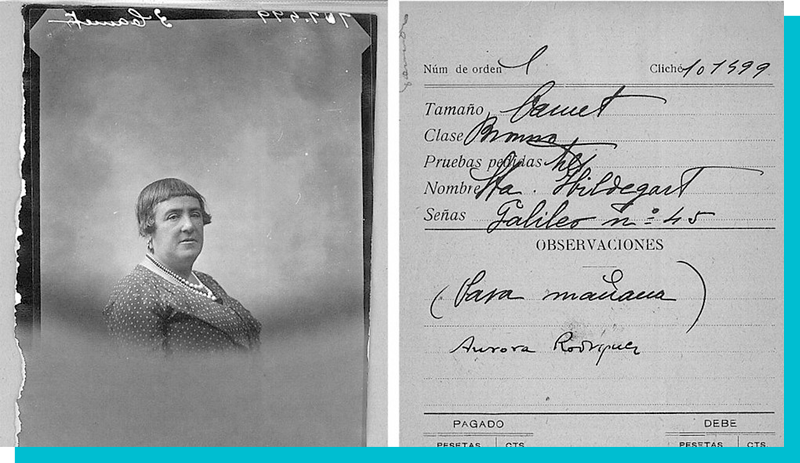 Carnet 107.499
Núm de orden 1 Cliché 107499
Tamaño Carnet
Clase Bromo
Pruebas pedidas tres
Nombre Sta. Hildegart
Señas Galileo nº 45
OBSERVACIONES
(Para mañana)
Aurora Rodriguez
PAGADO DEBE
PESETAS CTS. PESETAS CTS.